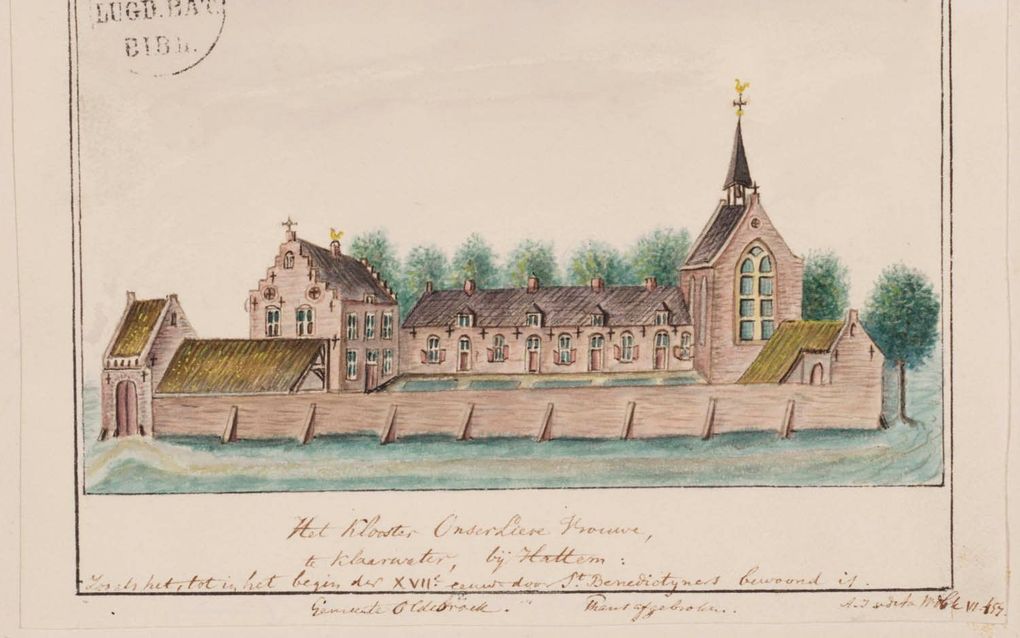 LUGD. BAT.
BIBL.
Het Klooster Onser Lieve Vrouwe,
te Klaarwater, bij Hattem:
Zoo als het, tot in het begin der XVII.e eeuw door St. Benedictyners bewoond is.
Gemeente Oldebroek. Thans afgebroken.
VI.